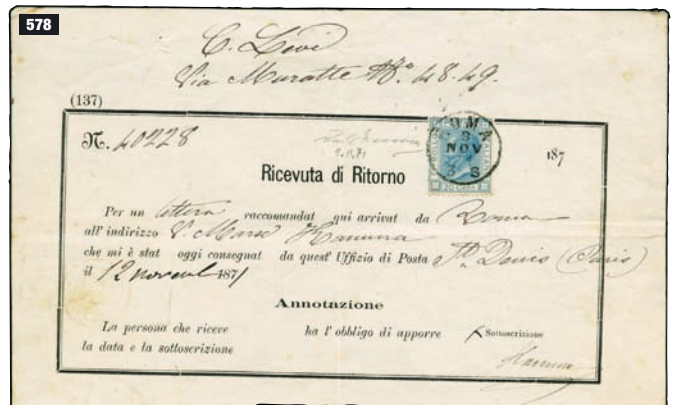 578
C. Levi
Via Muratte N.º 48.49.
(137)
N. 40228
9.11.71
ROMA
3
NOV
3 S
187
20 CENT
Ricevuta di Ritorno
Per un lettera raccomandat qui arrivat da Roma
all' indirizzo
che mi è stat oggi consegnat da quest' Uffizio di Posta St. Denis (Paris)
il 12 novemb 1871
Annotazione
La persona che riceve ha l' obbligo di apporre Sottoscrizione
la data e la sottoscrizione